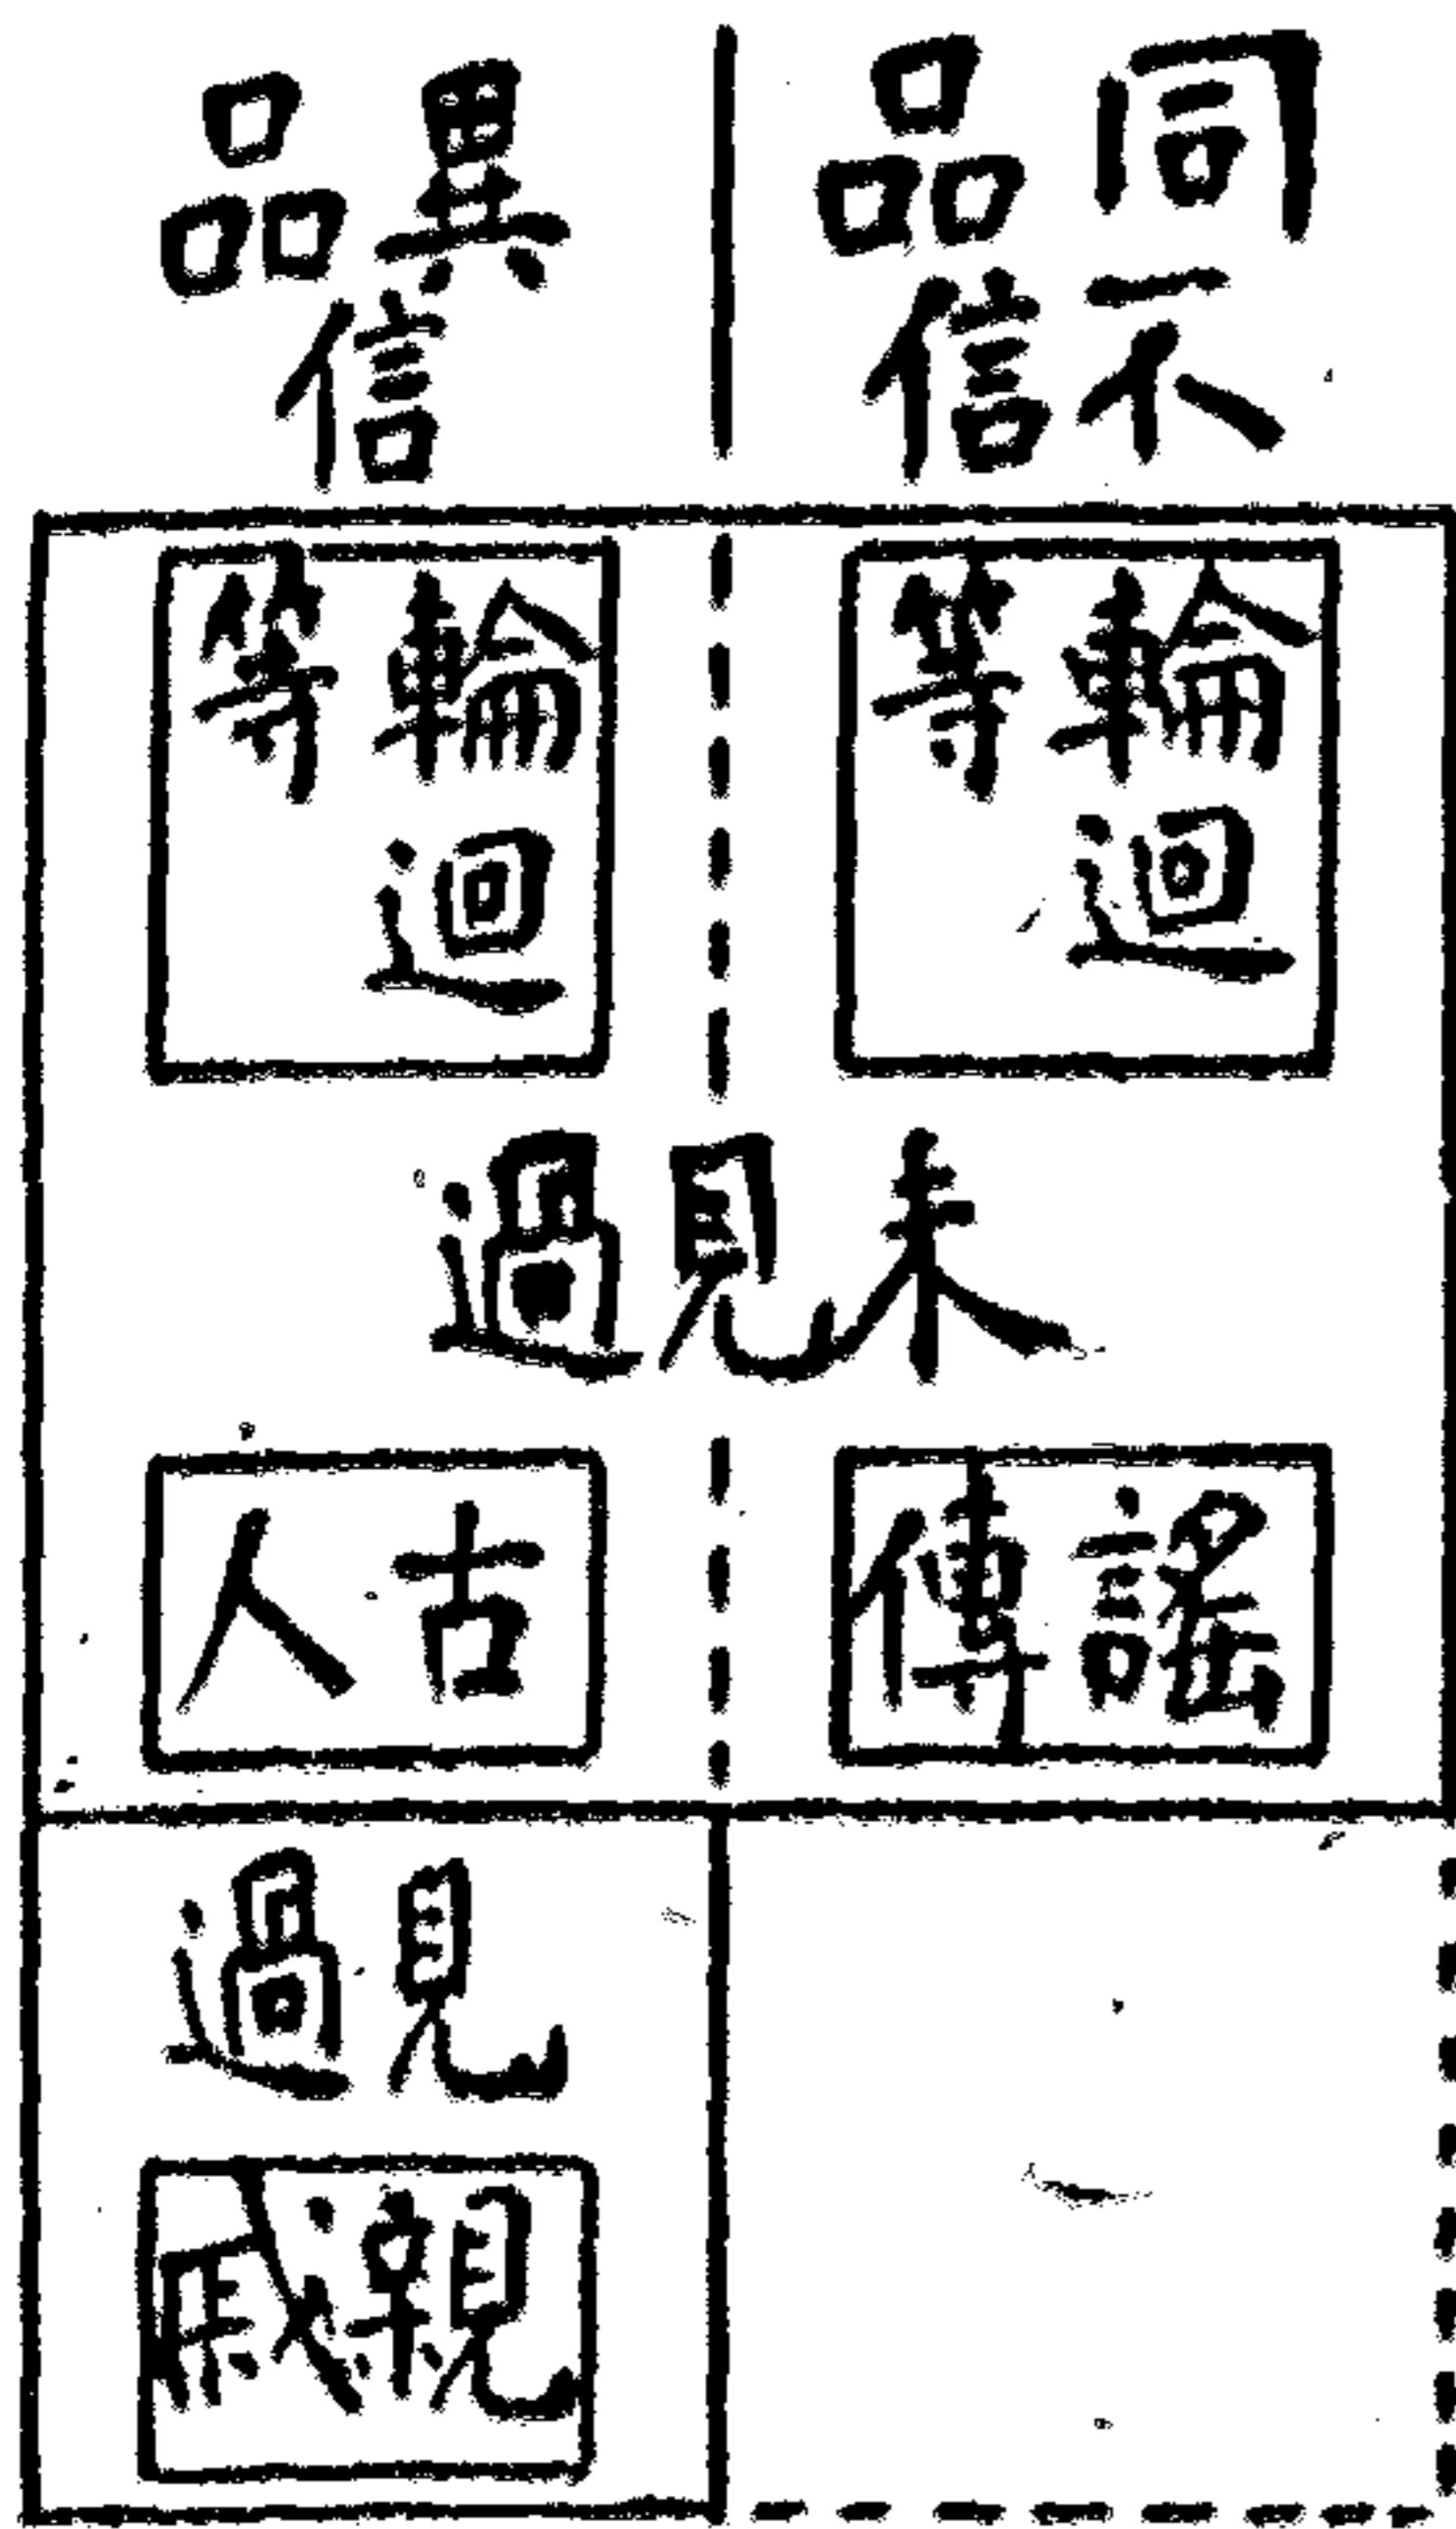 同品
不信
異品
信
輪迴等
輪迴等
未見過
謠傳
古人
見過
親戚